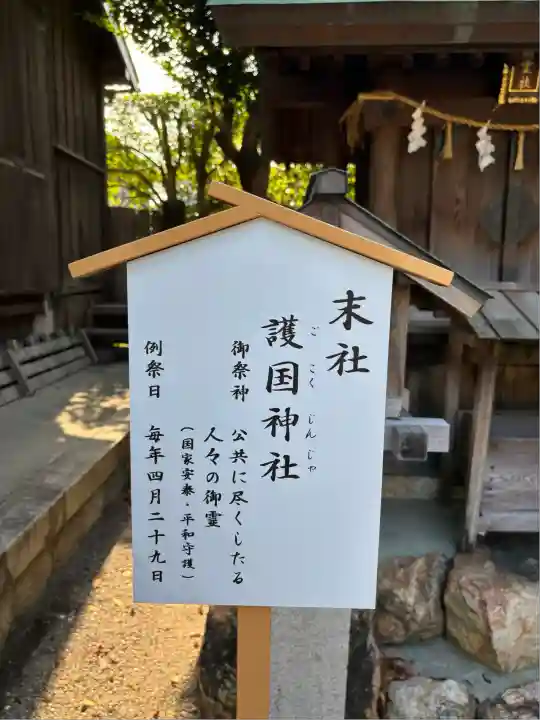 末社
護国神社
ごこくじんじゃ
御祭神 公共に尽くしたる
人々の御霊
(国家安泰・平和守護)
例祭日 毎年四月二十九日